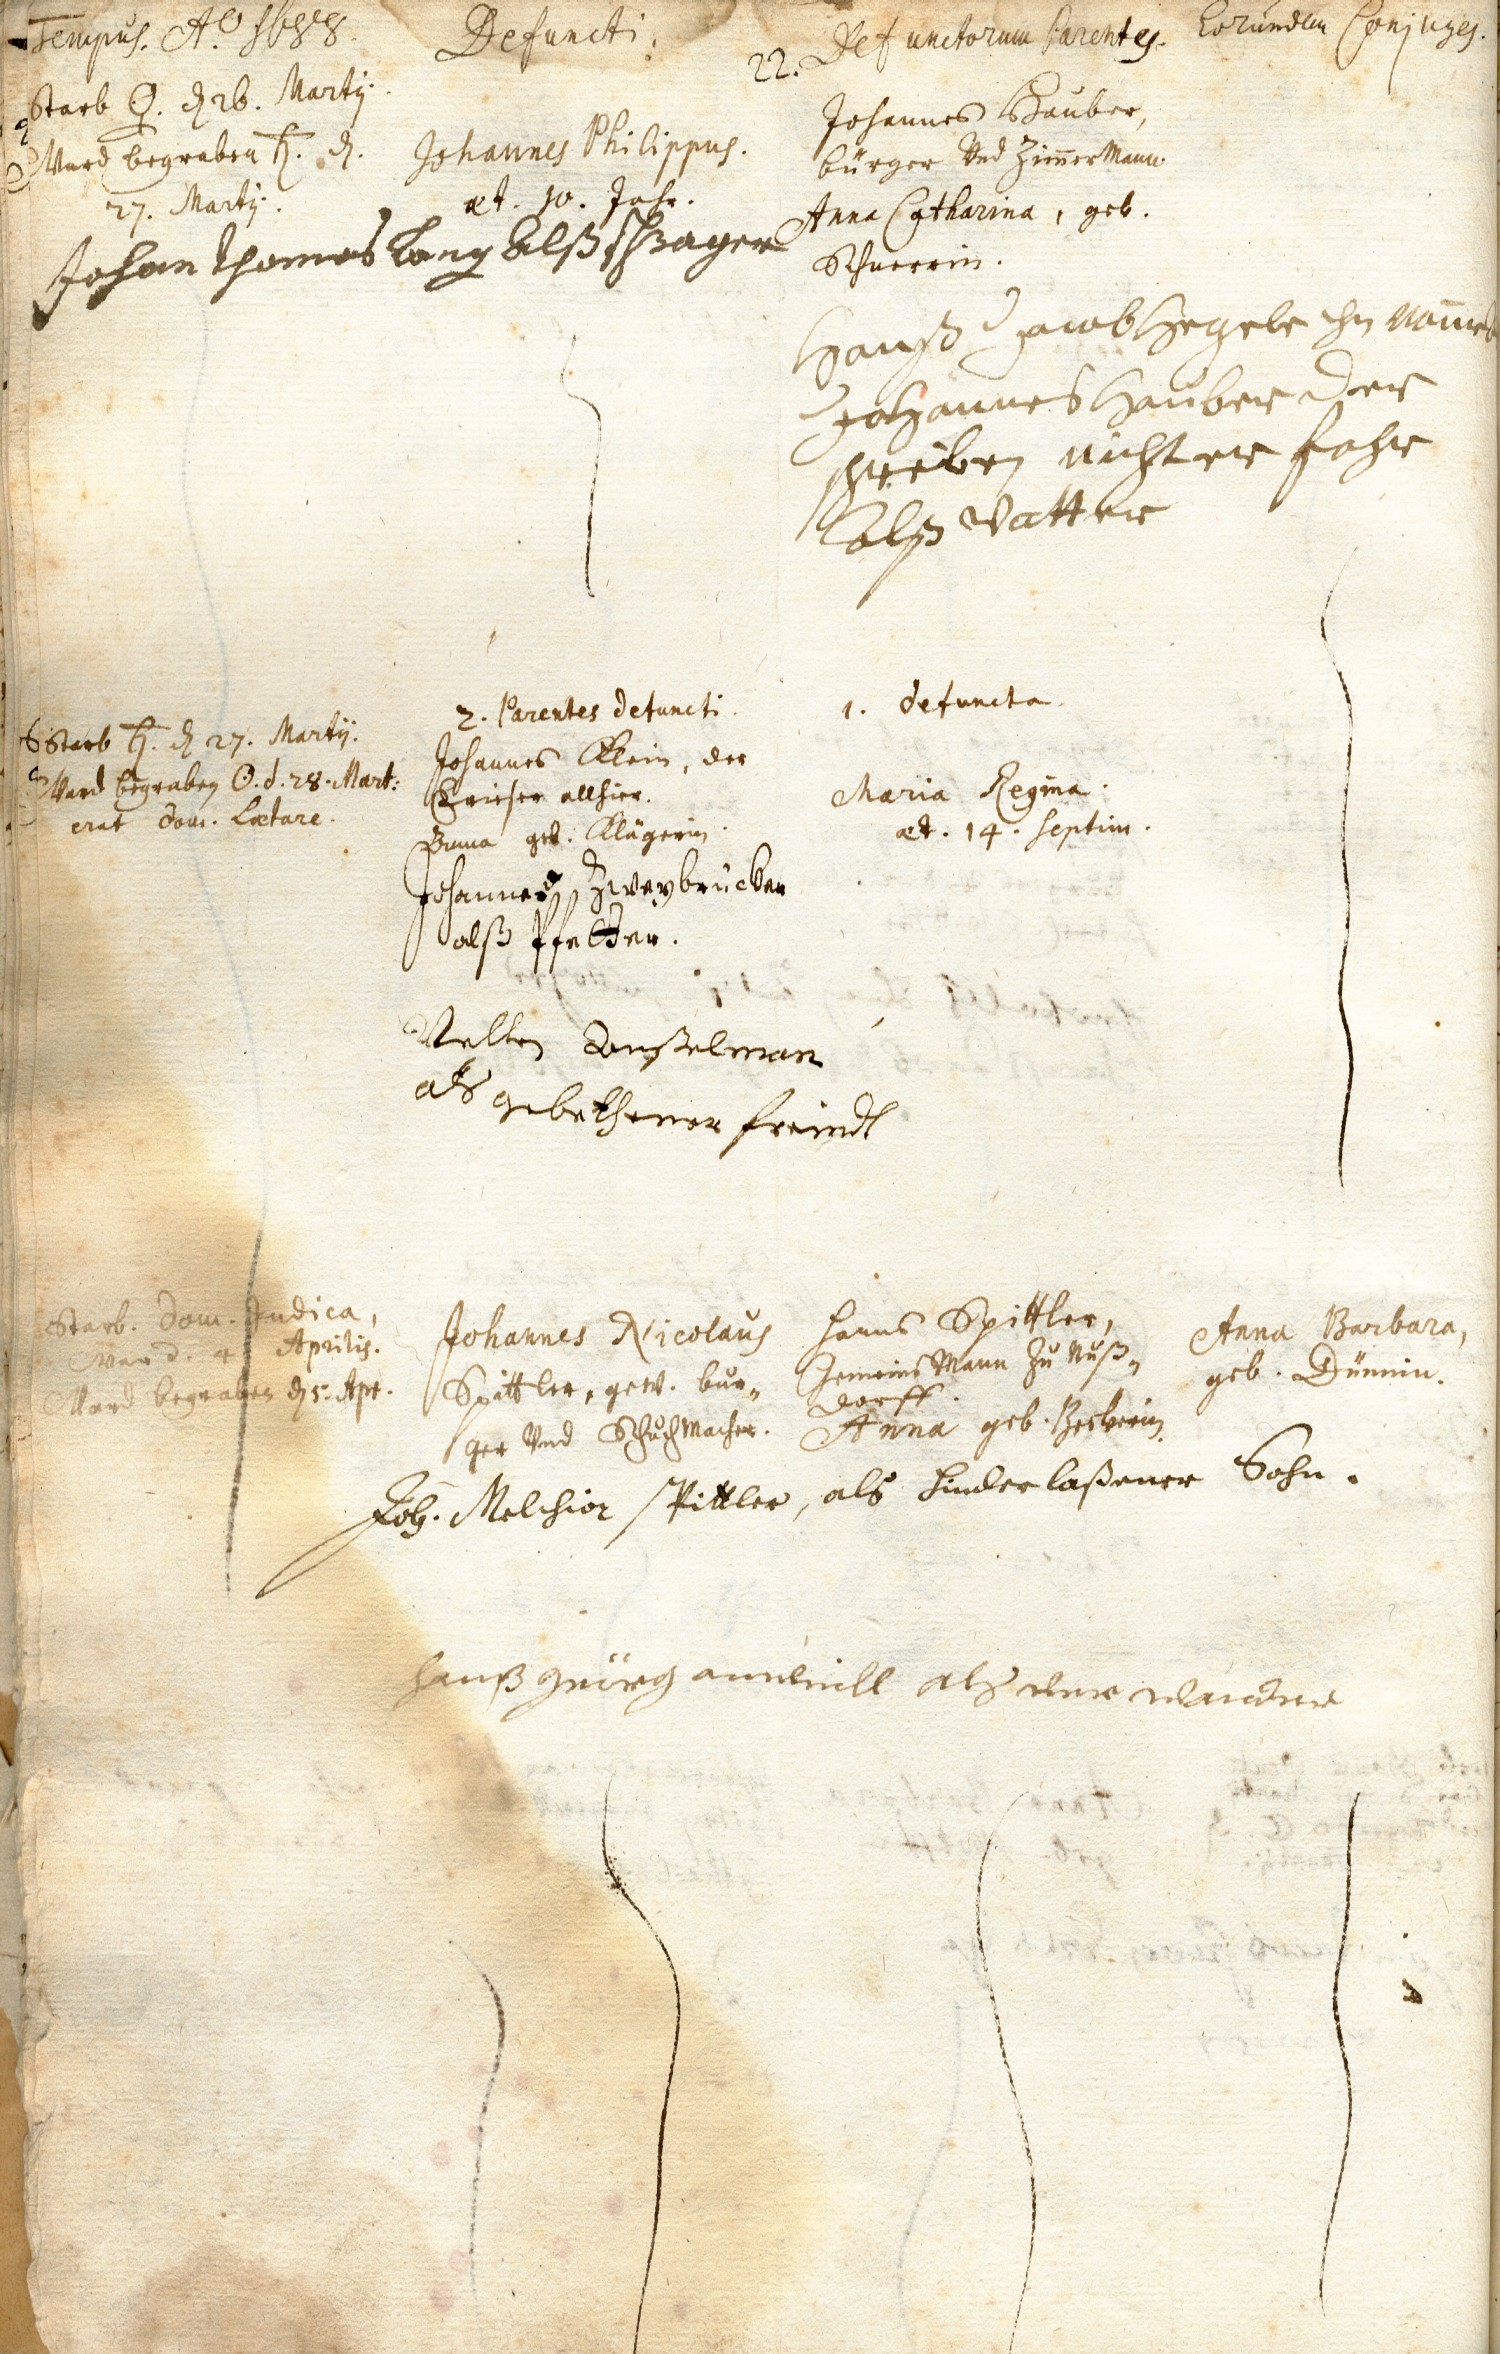 Tempus. Aō 1688.
Defuncti.
22. Defunctorum Parentes.
Eorundem Conjuges.
Starb ♀. d 26. Martij.
Ward begraben ♄. d.
27. Martij.
Johannes Philippus.
æt. 10. Jahr.
Johannes Hauber,
bürger Vnd Zim̄erMann
Anna Catharina, geb.
Schnerrin.
Johan Thomas Lang alß
Hanß Jacob Hegele
Johannes Hauber der
schreiben nicht er fahr
alß Vatter
Starb ♄. d 27. Martij.
Ward begraben ☉. d. 28. Mart:
erat dom. Lætare.
2. Parentes defuncti.
Johannes Klein, der
allhier.
geb. Klägerin.
Johannes Zweybrücker
alß Pfetter.
1. defuncta.
Maria Regina.
æt. 14. Septim.
Velten Conßelman
als gebethener freindt
Starb. Dom. Judica,
Aprilis.
Ward begraben d 5. Apr.
Johannes Nicolaus
Spittler, gew. bur„
ger Vnd Schuchmacher.
Hanns Spittler,
Gemeins Mann Zu Nuß„
dorff.
Anna geb. Beckerin
Anna Barbara,
geb. Dünnin.
Joh. Melchior Spittler, als hinderlaßener Sohn.
Hanß Geörg als